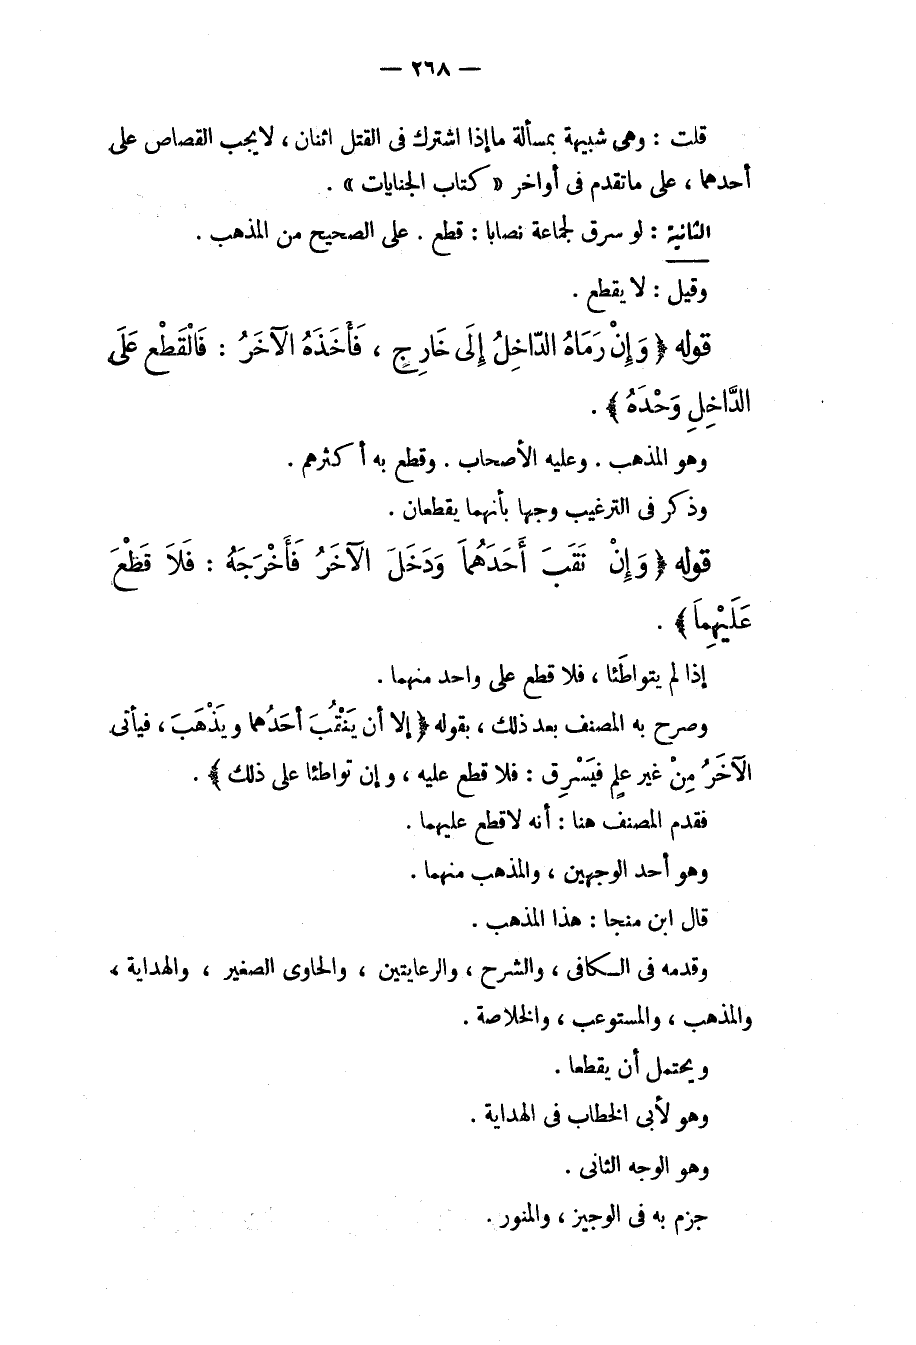 — ٢٦٨ —
قلت : وهى شبيهة بمسألة ماإذا اشترك فى القتل اثنان ، لايجب القصاص على
أحدهما ، على ماتقدم فى أواخر « كتاب الجنايات » .
الثانية : لو سرق لجماعة نصابا : قطع . على الصحيح من المذهب .
وقيل : لا يقطع .
قوله ﴿ وَإِنْ رَمَاهُ الدَّاخِلُ إِلَى خَارِجٍ ، فَأَخَذَهُ الآخَرُ : فَالْقَطْع عَلَى
الدَّاخِلِ وَحْدَهُ ﴾ .
وهو المذهب . وعليه الأصحاب . وقطع به أكثرهم .
وذكر فى الترغيب وجها بأنهما يقطعان .
قوله ﴿ وَإِنْ نَقَبَ أَحَدَهُمَا وَدَخَلَ الآخَرُ فَأَخْرَجَهُ : فَلاَ قَطْعَ
عَلَيْهِمَا ﴾ .
إذا لم يتواطَئا ، فلا قطع على واحد منهما .
وصرح به المصنف بعد ذلك ، بقوله ﴿ إلا أن يَنْقُبَ أحَدُهما ويَذْهَبَ ، فيأتى
الآخَرُ مِنْ غير علم فيَسْرِق : فلا قطع عليه ، وإن تواطئا على ذلك ﴾ .
فقدم المصنف هنا : أنه لاقطع عليهما .
وهو أحد الوجهين ، والمذهب منهما .
قال ابن منجا : هذا المذهب .
وقدمه فى الكافى ، والشرح ، والرعايتين ، والحاوى الصغير ، والهداية ،
والمذهب ، والمستوعب ، والخلاصة .
ويحتمل أن يقطعا .
وهو لأبى الخطاب فى الهداية .
وهو الوجه الثانى .
جزم به فى الوجيز ، والمنور .